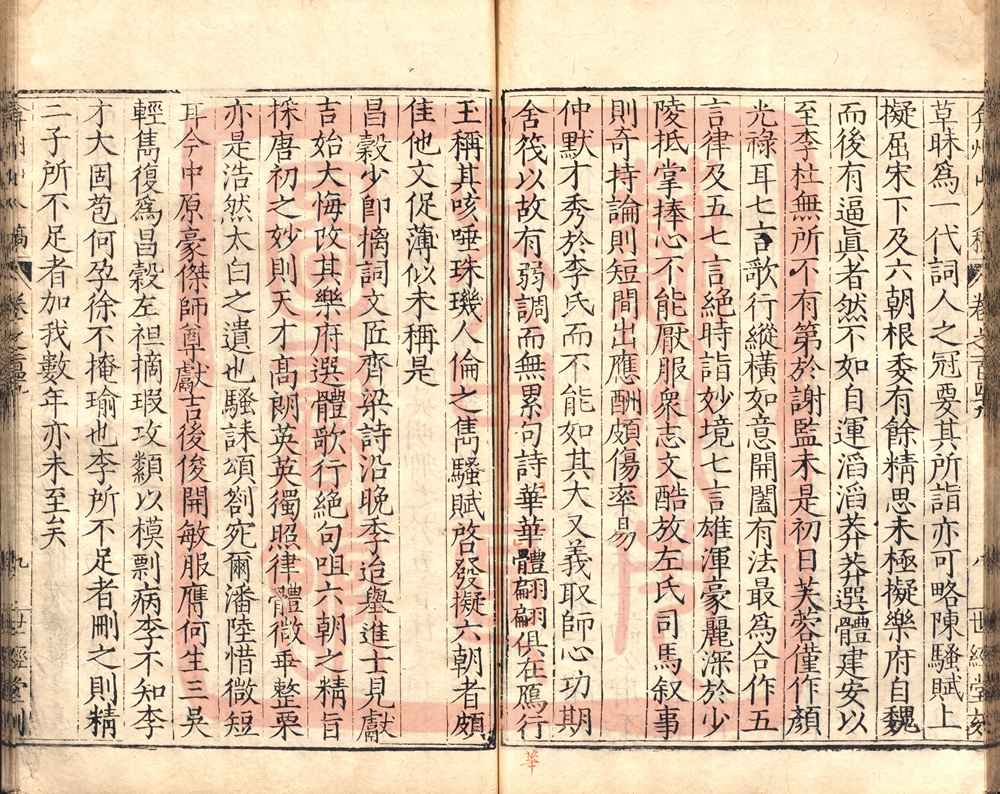 弇州山人稿 卷之百四九 八 世經堂刻
草昧爲一代詞人之冠要其所詣亦可略陳騷賦上
擬屈宋下及六朝根委有餘精思未極擬樂府自魏
而後有逼眞者然不如自運滔滔莽莽選體建安以
至李杜無所不有第於謝監未是初日芙蓉僅作顏
光祿耳七言歌行縱橫如意開闔有法最爲合作五
言律及五七言絶時詣妙境七言雄渾豪麗深於少
陵抵掌捧心不能厭服衆志文酷放左氏司馬叙事
則奇持論則短間出應酬頗傷率易
仲默才秀於李氏而不能如其大又義取師心功期
舍筏以故有弱調而無累句詩華華體翩翩俱在鴈行
王稱其咳唾珠璣人倫之雋騷賦啓發擬六朝者頗
佳他文促薄似未稱是
昌穀少卽摛詞文匠齊梁詩沿晚季迨舉進士見獻
吉始大悔攺其樂府選體歌行絶句咀六朝之精旨
採唐初之妙則天才髙朗英英獨照律體微乖整栗
亦是浩然太白之遺也騷誄頌劄宛爾潘陸惜微短
耳今中原豪傑師尊獻吉後俊開敏服膺何生三吳
輕雋復爲昌穀左袒摘瑕攻纇以模剽病李不知李
才大固苞何孕徐不掩瑜也李所不足者刪之則精
二子所不足者加我數年亦未至矣
弇州山人稿 卷之百四九 九 世經堂刻
華